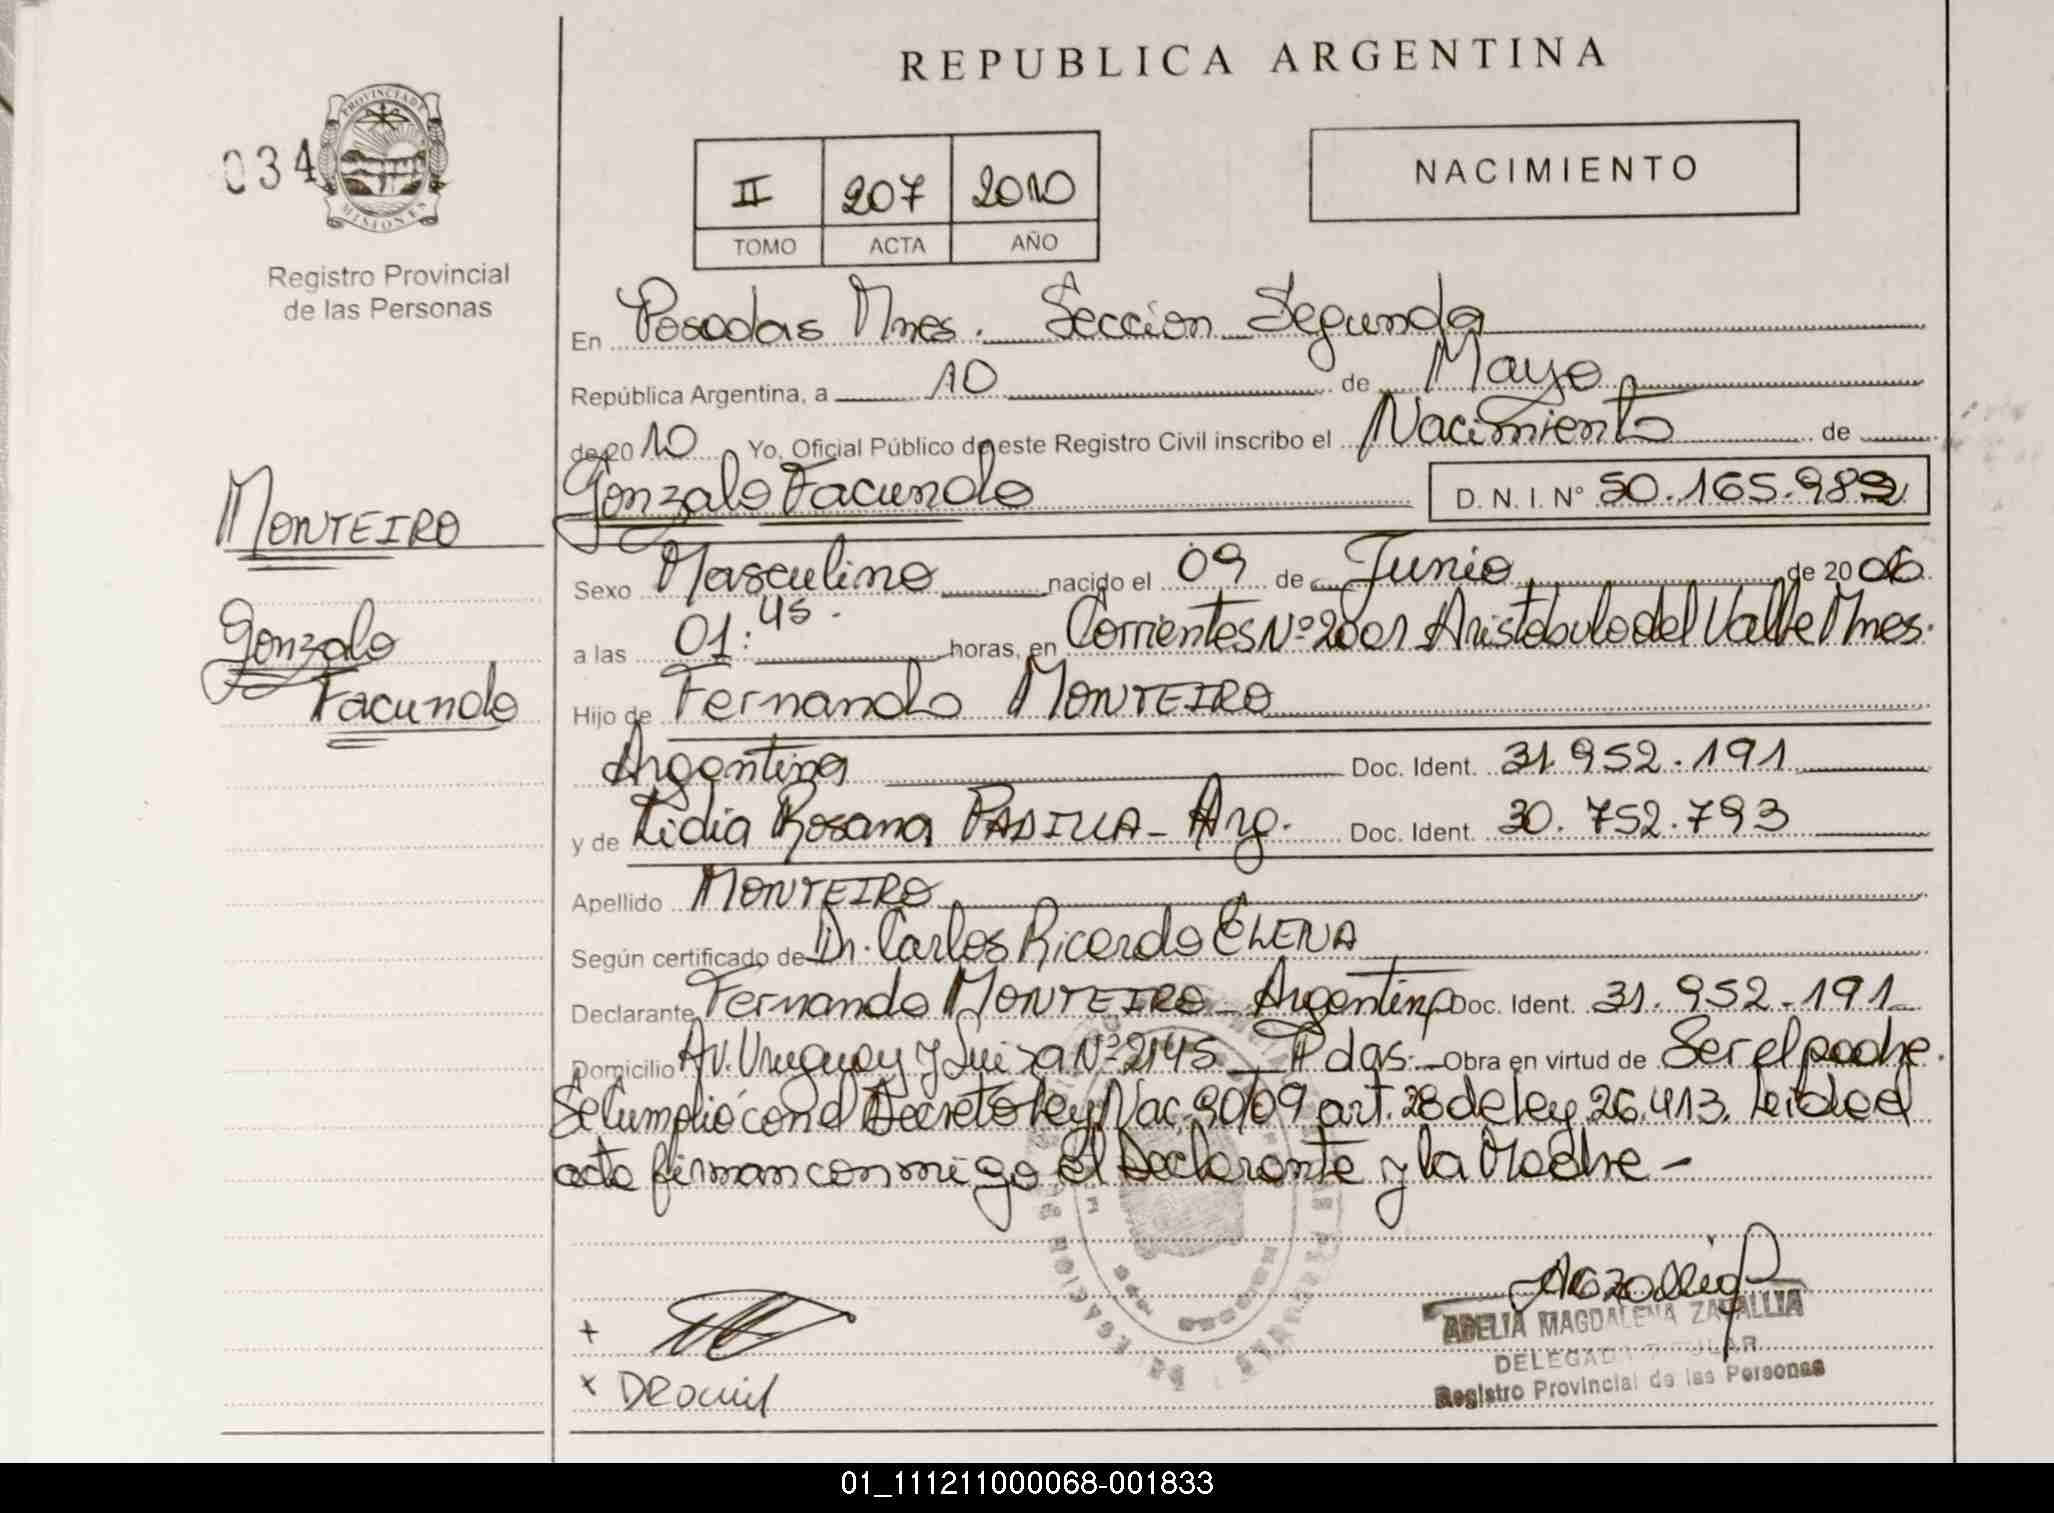 REPUBLICA ARGENTINA
034
PROVINCIA DE
MISIONES
Registro Provincial
de las Personas
II 207 2010
TOMO ACTA AÑO
NACIMIENTO
En Posadas Mnes. Seccion Segunda
República Argentina, a 10 de Mayo
de 2010 Yo, Oficial Público de este Registro Civil inscribo el Nacimiento de
Gonzalo Facundo D. N. I. N° 50.165.982
MONTEIRO
Gonzalo
Facundo
Sexo Masculino nacido el 09 de Junio de 2006
a las 01:45. horas, en Corrientes Nº 2001 Aristobulo del Valle Mnes.
Hijo de Fernando MONTEIRO
Argentina Doc. Ident. 31.952.191
y de Lidia Rosana PADILLA - Arg. Doc. Ident. 30.752.793
Apellido MONTEIRO
Según certificado de Dr. Carlos Ricardo ELENA
Declarante Fernando MONTEIRO - Argentina Doc. Ident. 31.952.191
Domicilio Av. Uruguay y Luisa Nº 2145 Pdas. Obra en virtud de Ser el padre.
Se cumplió con el Decreto ley Nac. 90/09 art. 28 de ley 26.413. Leida el
acta firman conmigo el Declarante y la Madre -
ADELIA MAGDALENA ZAPALLIA
DELEGADA TITULAR
Registro Provincial de las Personas
01_111211000068-001833